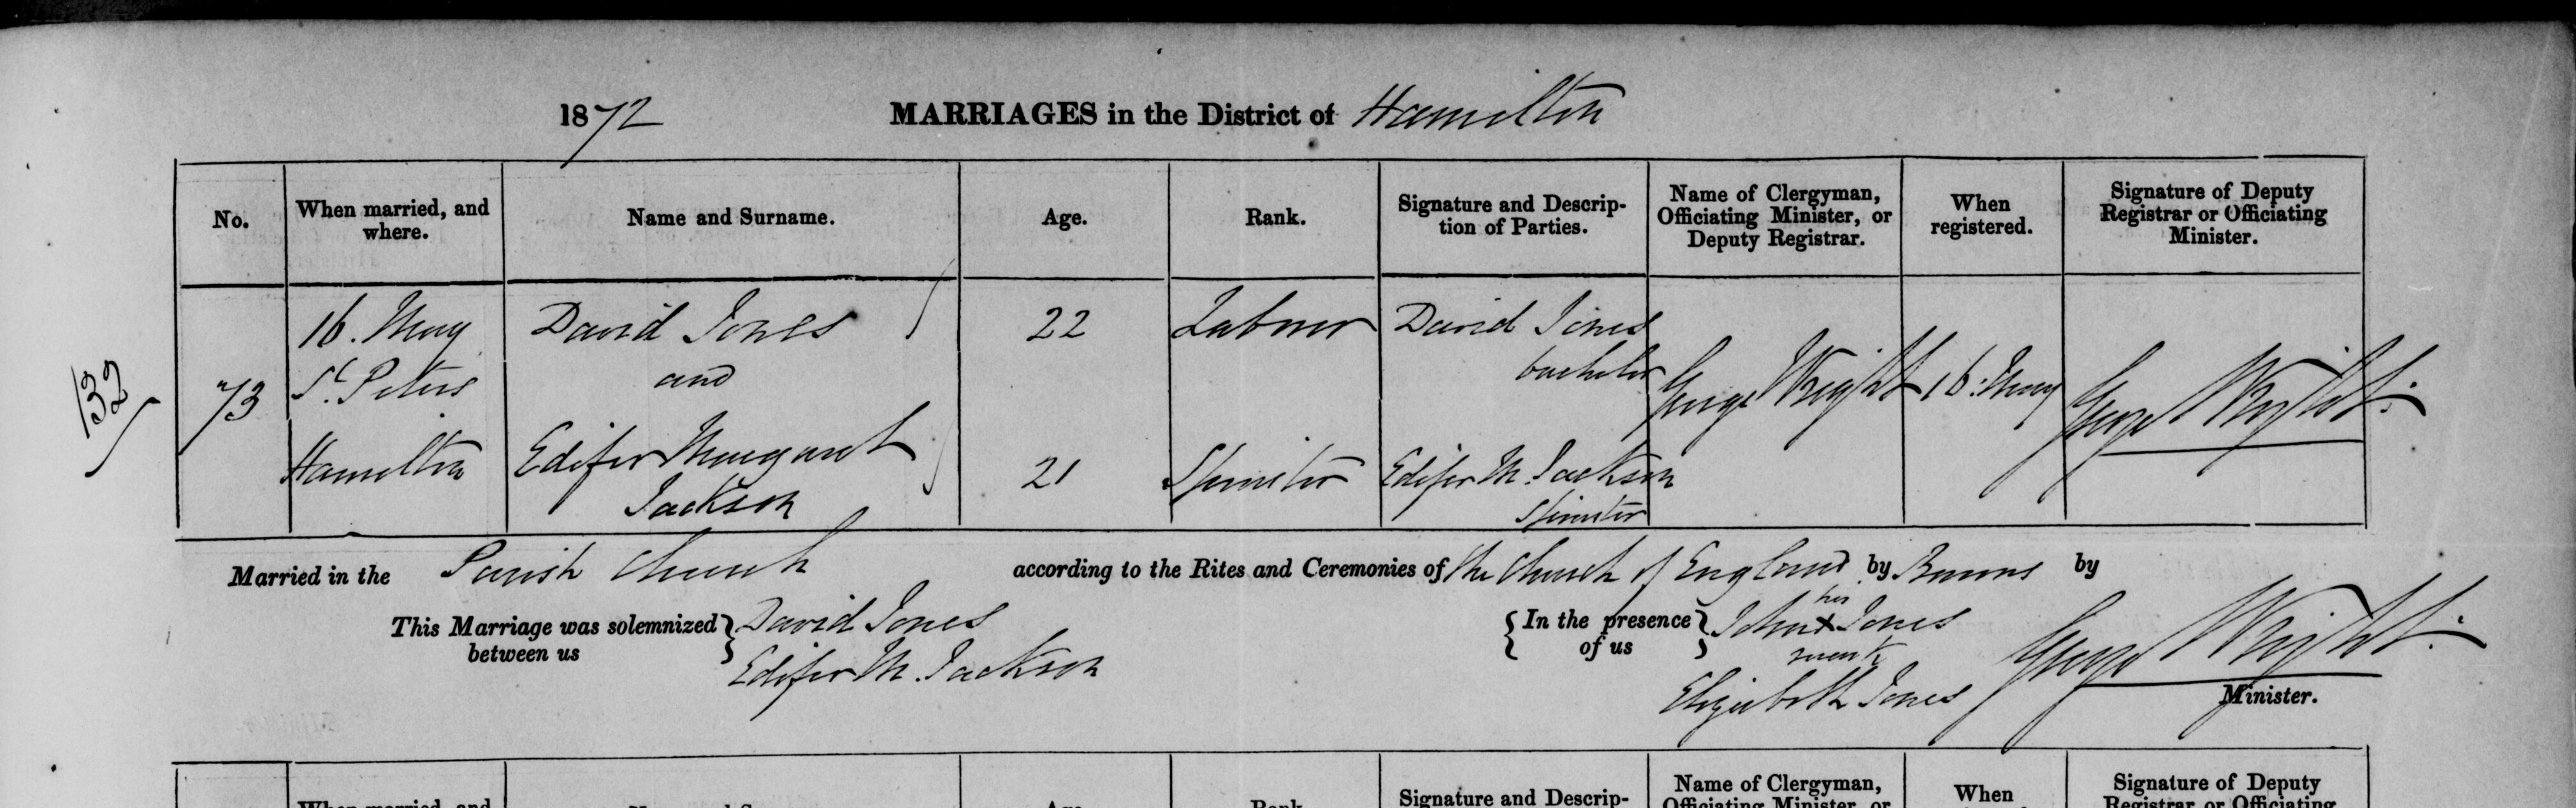 1872 MARRIAGES in the District of Hamilton
No.
When married, and
where.
Name and Surname.
Age.
Rank.
Signature and Descrip-
tion of Parties.
Name of Clergyman,
Officiating Minister, or
Deputy Registrar.
When
registered.
Signature of Deputy
Registrar or Officiating
Minister.
132
73
16. May
St. Peters
Hamilton
David Jones
and
Edifer Margaret
Jackson
22
21
Labrer
Spinster
David Jones
bachelor
Edifer M. Jackson
Spinster
George Wright
16. May
George Wright
Married in the Parish Church according to the Rites and Ceremonies of the Church of England by Banns by
This Marriage was solemnized
between us
David Jones
Edifer M. Jackson
In the presence
of us
his
John x Jones
mark
Elizabeth Jones
George Wright
Minister.
When married, and
Age
Rank
Signature and Descrip-
Name of Clergyman,
Officiating Minister, or
When
Signature of Deputy
Registrar or Officiating